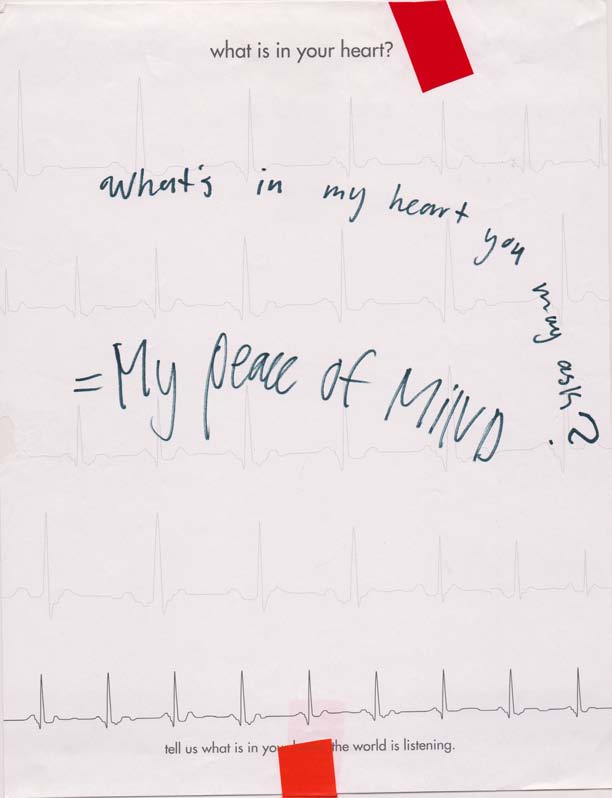 what is in your heart?
what's in my heart you may ask?
= My peace of MiND
tell us what is in you the world is listening.